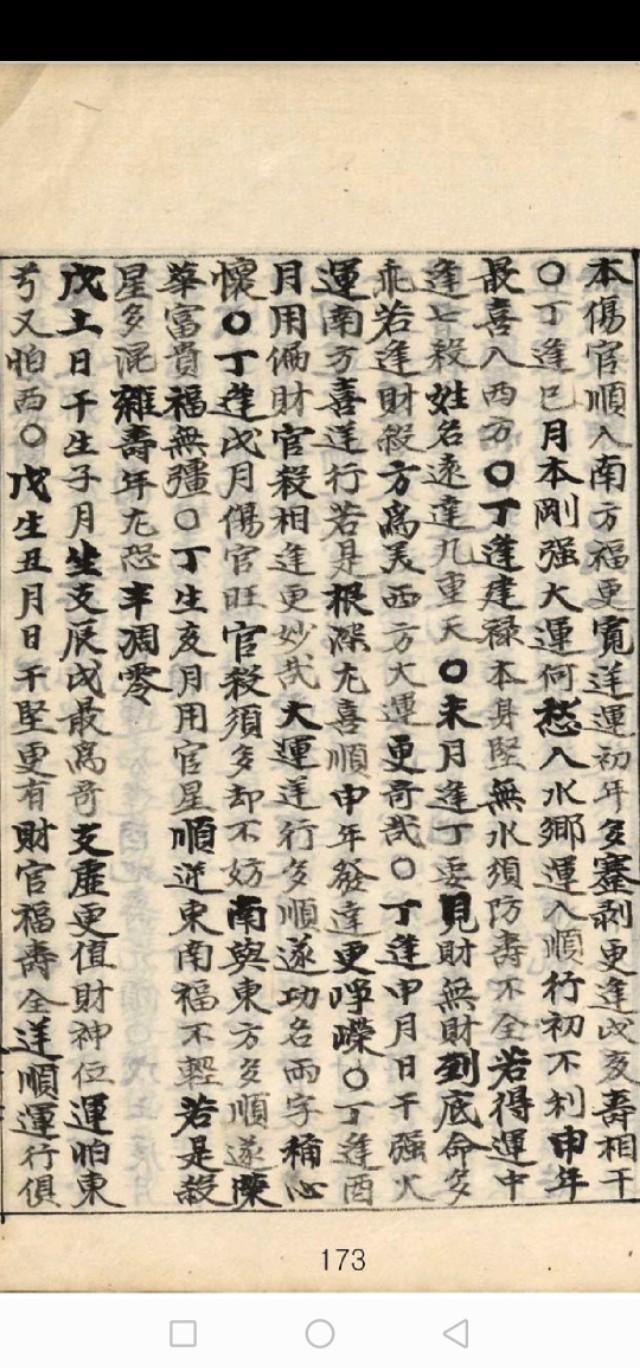 本傷官順入南方福更寬逆運初年多蹇剥更逢戌亥壽相干
〇丁逢巳月本剛强大運何愁入水鄉運入順行初不利申年
最喜入西方〇丁逢建祿本身堅無水須防壽不全若得運中
逢七殺姓名遠達九重天〇未月逢丁要見財無財到底命多
乖若逢財殺方為美西方大運更奇哉〇丁逢申月日干强火
運南方喜逆行若是根深尤喜順申年發達更崢嶸〇丁逢酉
月用偏財官殺相逢更妙哉大運逆行多順遂功名兩字稱心
懷〇丁逢戌月傷官旺官殺須多却不妨南與東方多順遂
華富貴福無疆〇丁生亥月用官星順逆東南福不輕若是殺
星多混雜壽年尤恐半凋零
戊土日干生子月坐支辰戌最為奇支虛更值財神位運怕東
兮又怕西〇戊生丑月日干堅更有財官福壽全逆順運行俱
173